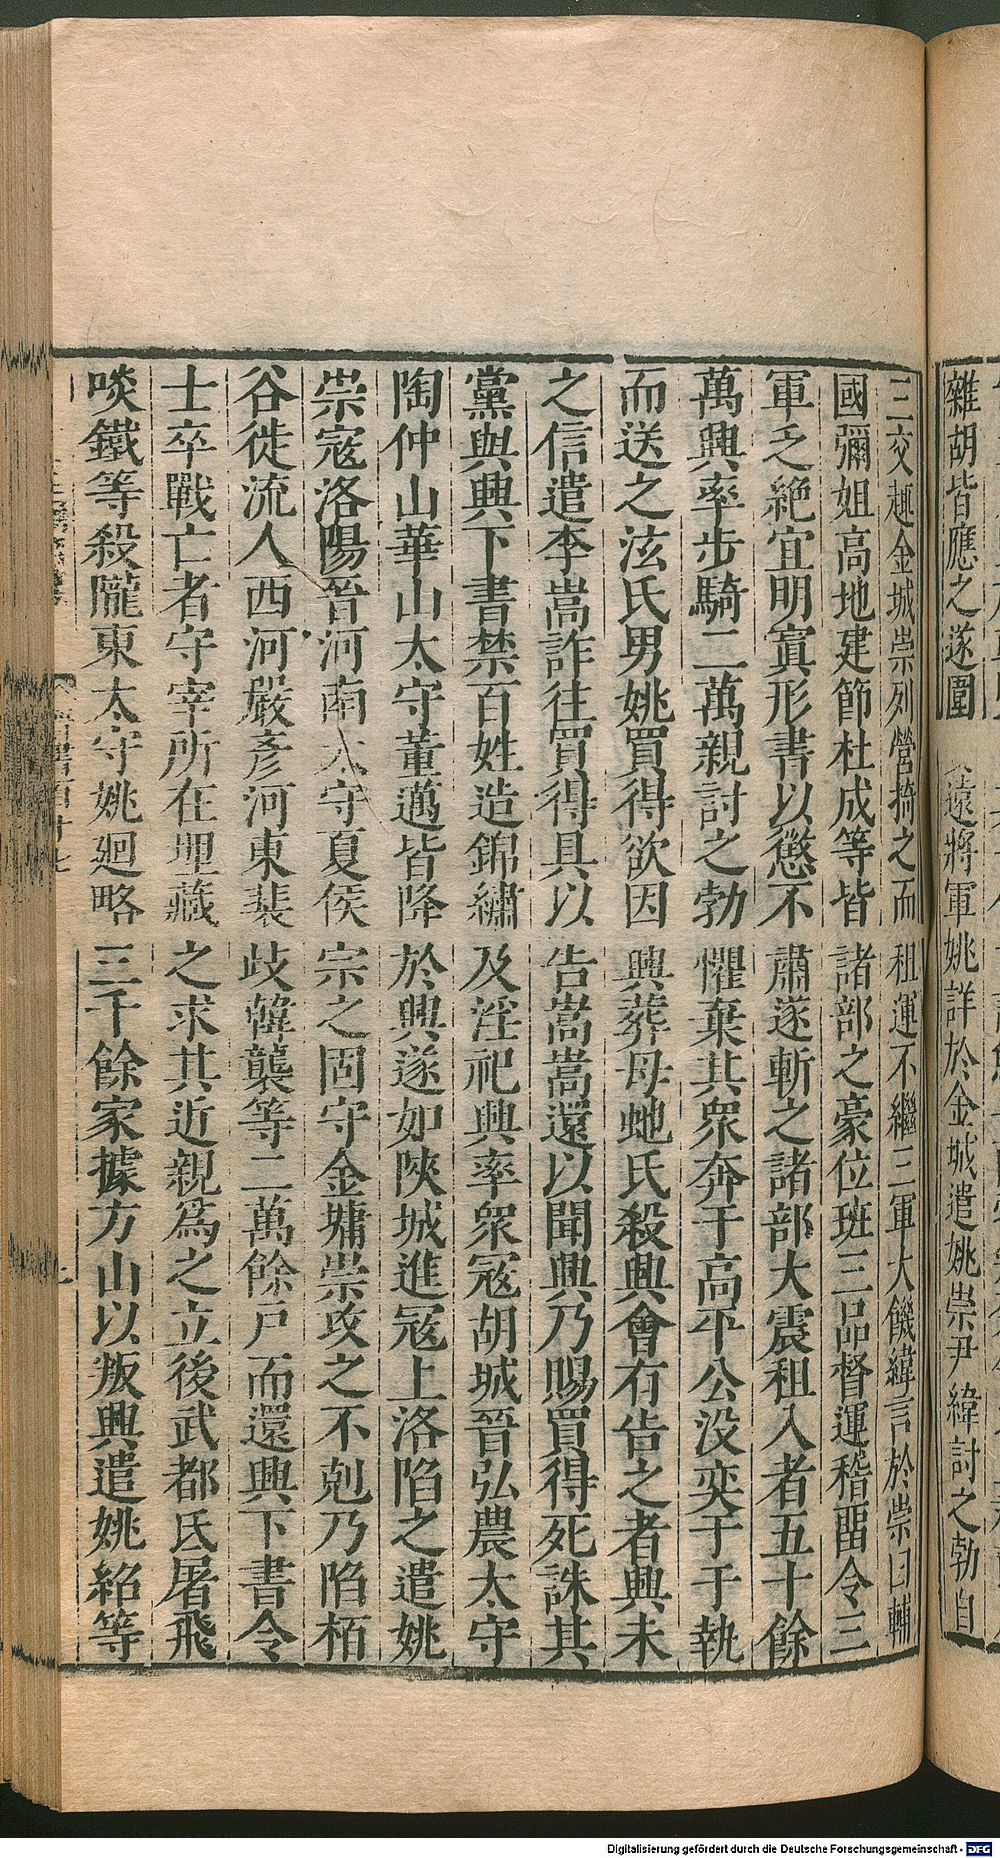 雜胡皆應之遂圍
遠將軍姚詳於金城遣姚崇尹緯討之勃自
三交趣金城崇列營掎之而租運不繼三軍大饑緯言於崇曰輔
國彌姐高地建節杜成等皆諸部之豪位班三品督運稽留令三
軍乏絕宜明寘形書以懲不肅遂斬之諸部大震租入者五十餘
萬興率步騎二萬親討之勃懼棄其衆奔于高平公没奕于于執
而送之泫氏男姚買得欲因興葬母虵氏殺興會有告之者興未
之信遣李嵩詐往買得具以告嵩嵩還以聞興乃賜買得死誅其
黨與興下書禁百姓造錦繡及淫祀興率衆寇胡城晉弘農太守
陶仲山華山太守董邁皆降於興遂如陝城進寇上洛陷之遣姚
崇寇洛陽晉河南太守夏侯宗之固守金墉崇攻之不剋乃陷栢
谷徙流人西河嚴彥河東裴歧韓襲等二萬餘戶而還興下書令
士卒戰亡者守宰所在埋藏之求其近親爲之立後武都氐屠飛
啖鐵等殺隴東太守姚廻略三千餘家據方山以叛興遣姚紹等
Digitalisierung gefördert durch die Deutsche Forschungsgemeinschaft - DFG